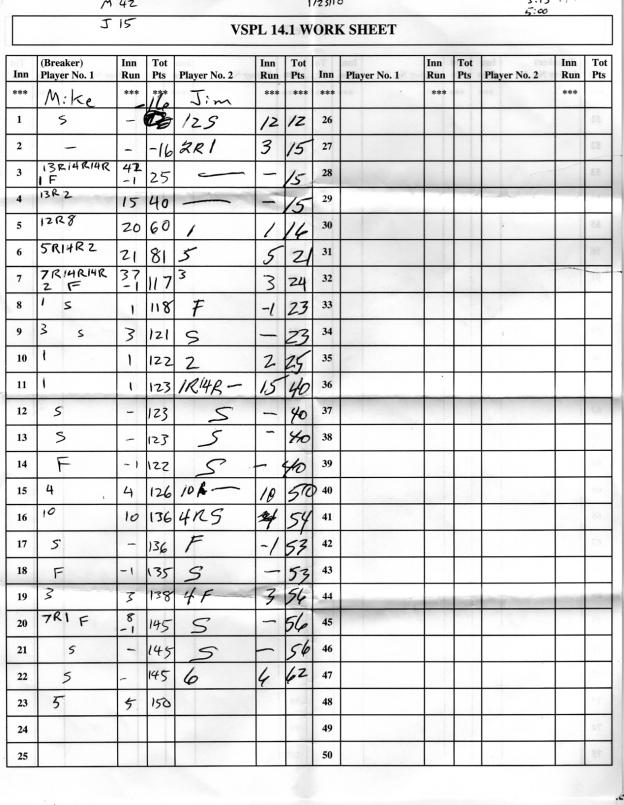 M 42 1/23/10
J 15 5:00
VSPL 14.1 WORK SHEET
Inn (Breaker) Player No. 1 Inn Run Tot Pts Player No. 2 Inn Run Tot Pts Inn Player No. 1 Inn Run Tot Pts Player No. 2 Inn Run Tot Pts
*** Mike *** *** -16 Jim *** *** *** *** ***
1 S - 12S 12 12 26
2 - - -16 2R1 3 15 27
3 13R14R14R 1F 42 -1 25 — - 15 28
4 13R2 15 40 — - 15 29
5 12R8 20 60 1 1 16 30
6 5R14R2 21 81 5 5 21 31
7 7R14R14R 2 F 37 -1 117 3 3 24 32
8 1 S 1 118 F -1 23 33
9 3 S 3 121 S - 23 34
10 1 1 122 2 2 25 35
11 1 1 123 1R14R- 15 40 36
12 S - 123 S - 40 37
13 S - 123 S - 40 38
14 F -1 122 S - 40 39
15 4 4 126 10R— 10 50 40
16 10 10 136 4RS 4 54 41
17 S - 136 F -1 53 42
18 F -1 135 S - 53 43
19 3 3 138 4F 3 56 44
20 7R1 F 8 -1 145 S - 56 45
21 S - 145 S - 56 46
22 S - 145 6 6 62 47
23 5 5 150 48
24 49
25 50